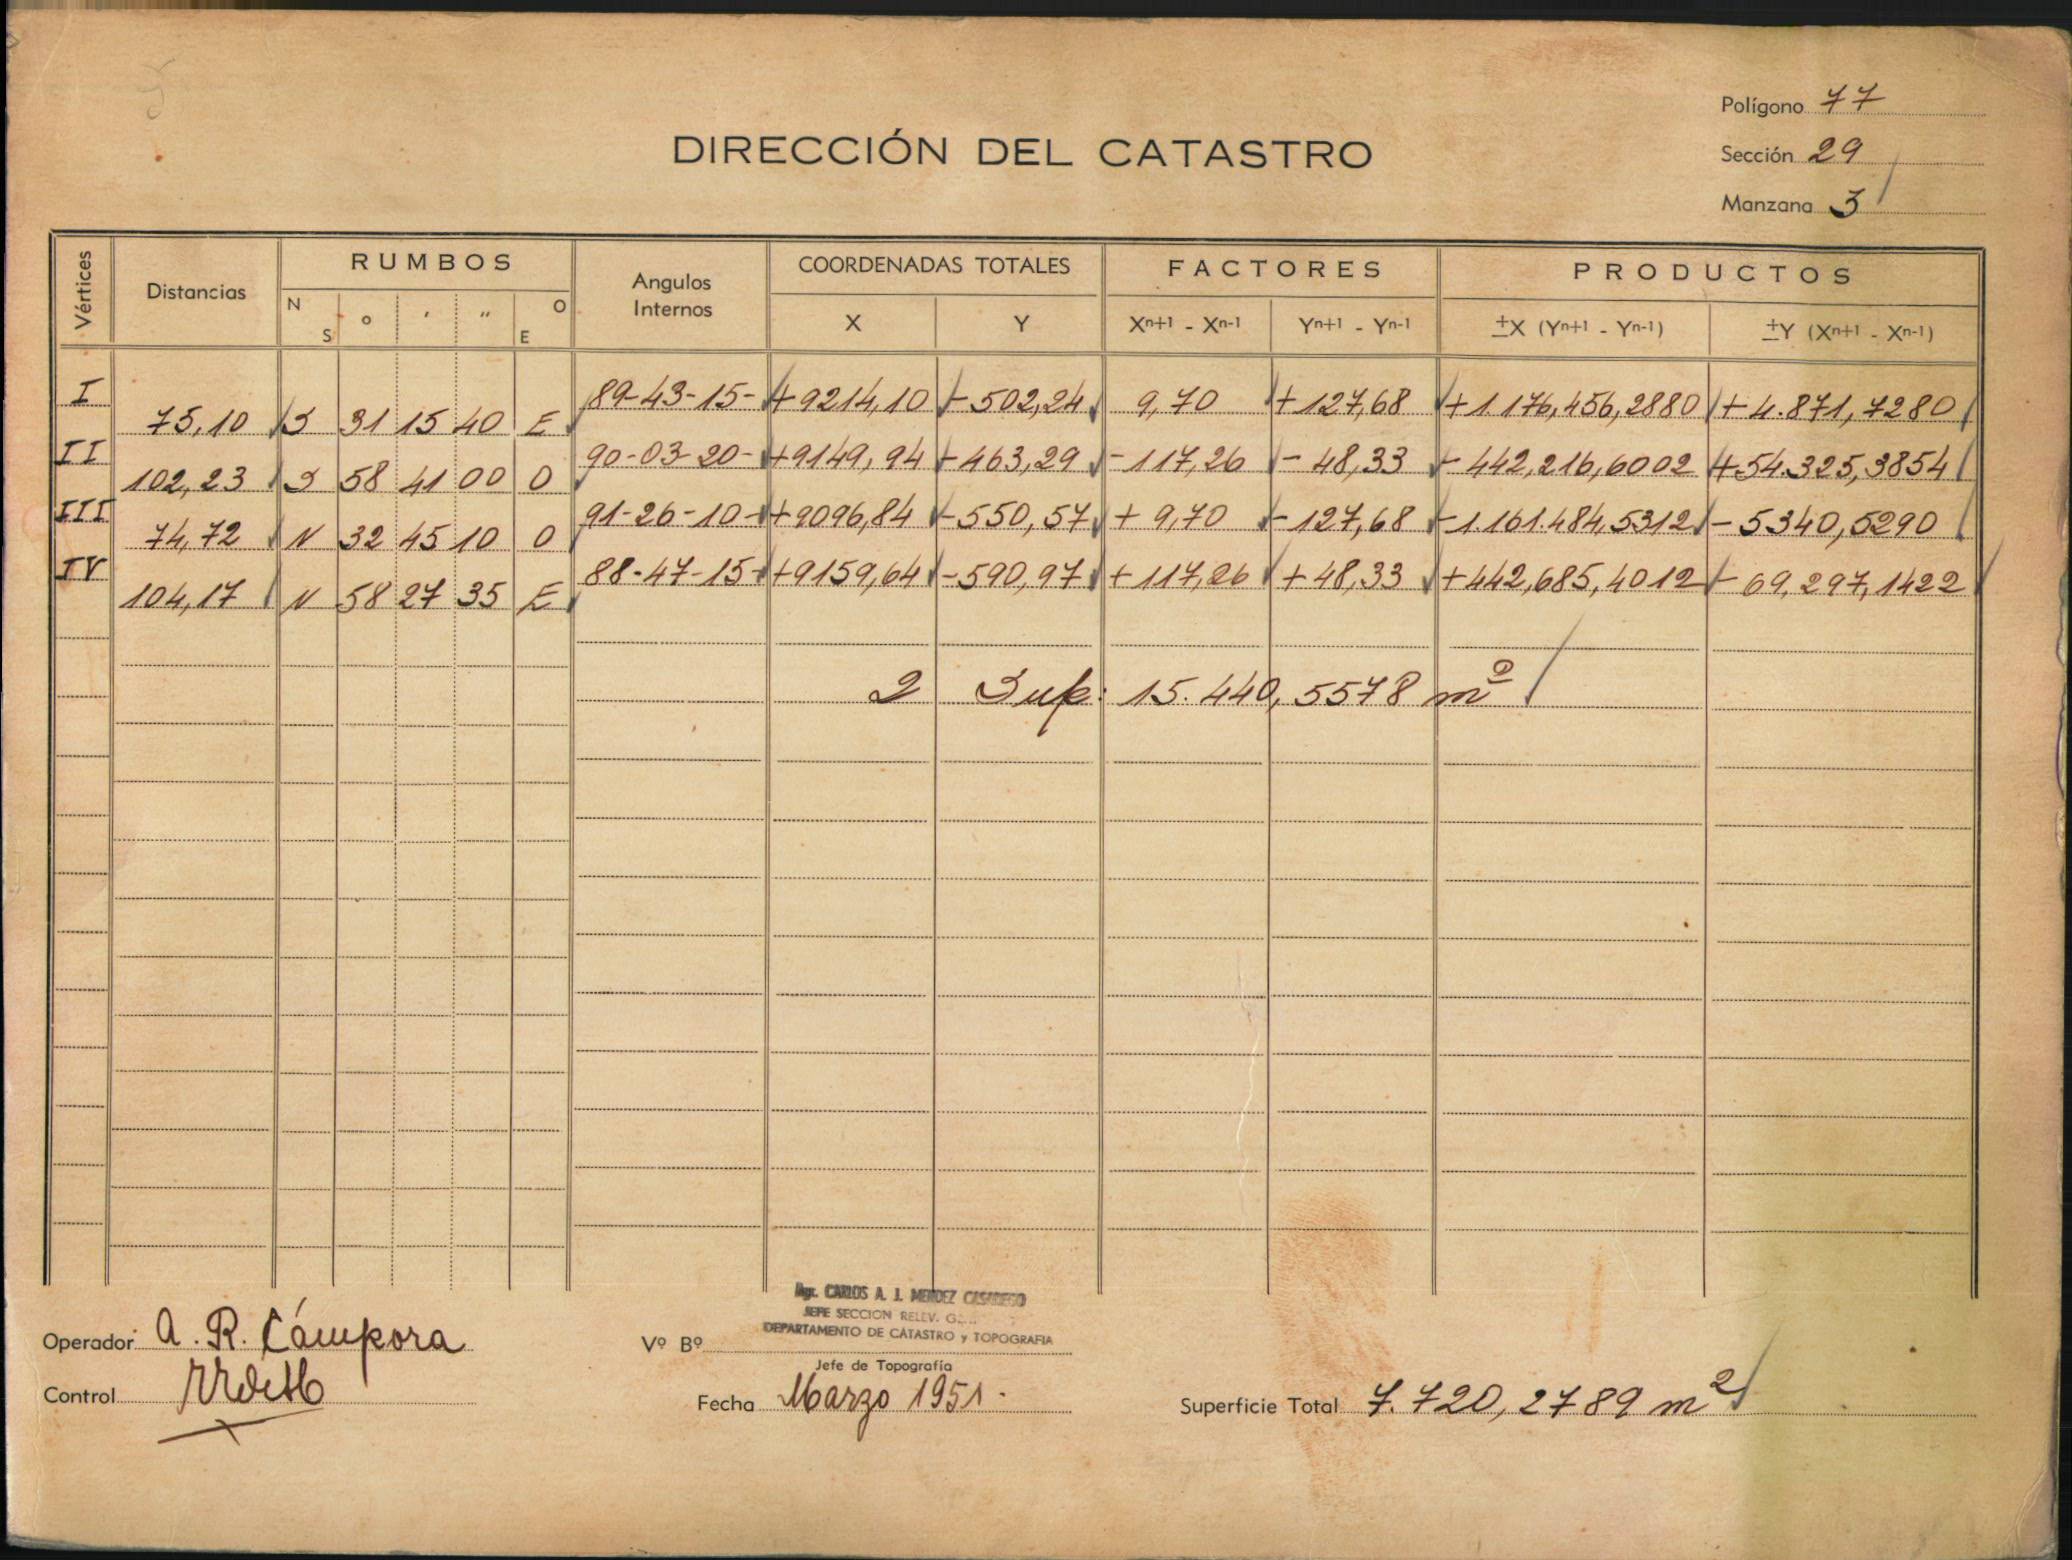 Polígono 77
DIRECCIÓN DEL CATASTRO
Sección 29
Manzana 3
Vértices Distancias RUMBOS Angulos Internos COORDENADAS TOTALES FACTORES PRODUCTOS
N S o ' " O E X Y Xn+1 - Xn-1 Yn+1 - Yn-1 ±X (Yn+1 - Yn-1) ±Y (Xn+1 - Xn-1)
I 89-43-15- +9214,10 -502,24 9,70 +127,68 +1.176,456,2880 +4.871,7280
75,10 S 31 15 40 E
II 90-03-20- +9149,94 -463,29 -117,26 -48,33 -442,216,6002 +54.325,3854
102,23 S 58 41 00 O
III 91-26-10- +9096,84 -550,57 +9,70 -127,68 -1.161.484,5312 -5340,5290
74,72 N 32 45 10 O
IV 88-47-15- +9159,64 -590,97 +117,26 +48,33 +442,685,4012 -69,297,1422
104,17 N 58 27 35 E
2 Sup: 15.440,5578 m2
Agr. CARLOS A. J. MENDEZ CASARIEGO
JEFE SECCION RELEV. G
DEPARTAMENTO DE CATASTRO y TOPOGRAFIA
Operador A. R. Cámpora
Vº Bº
Jefe de Topografía
Control
Fecha Marzo 1951.
Superficie Total 7.720,2789 m2